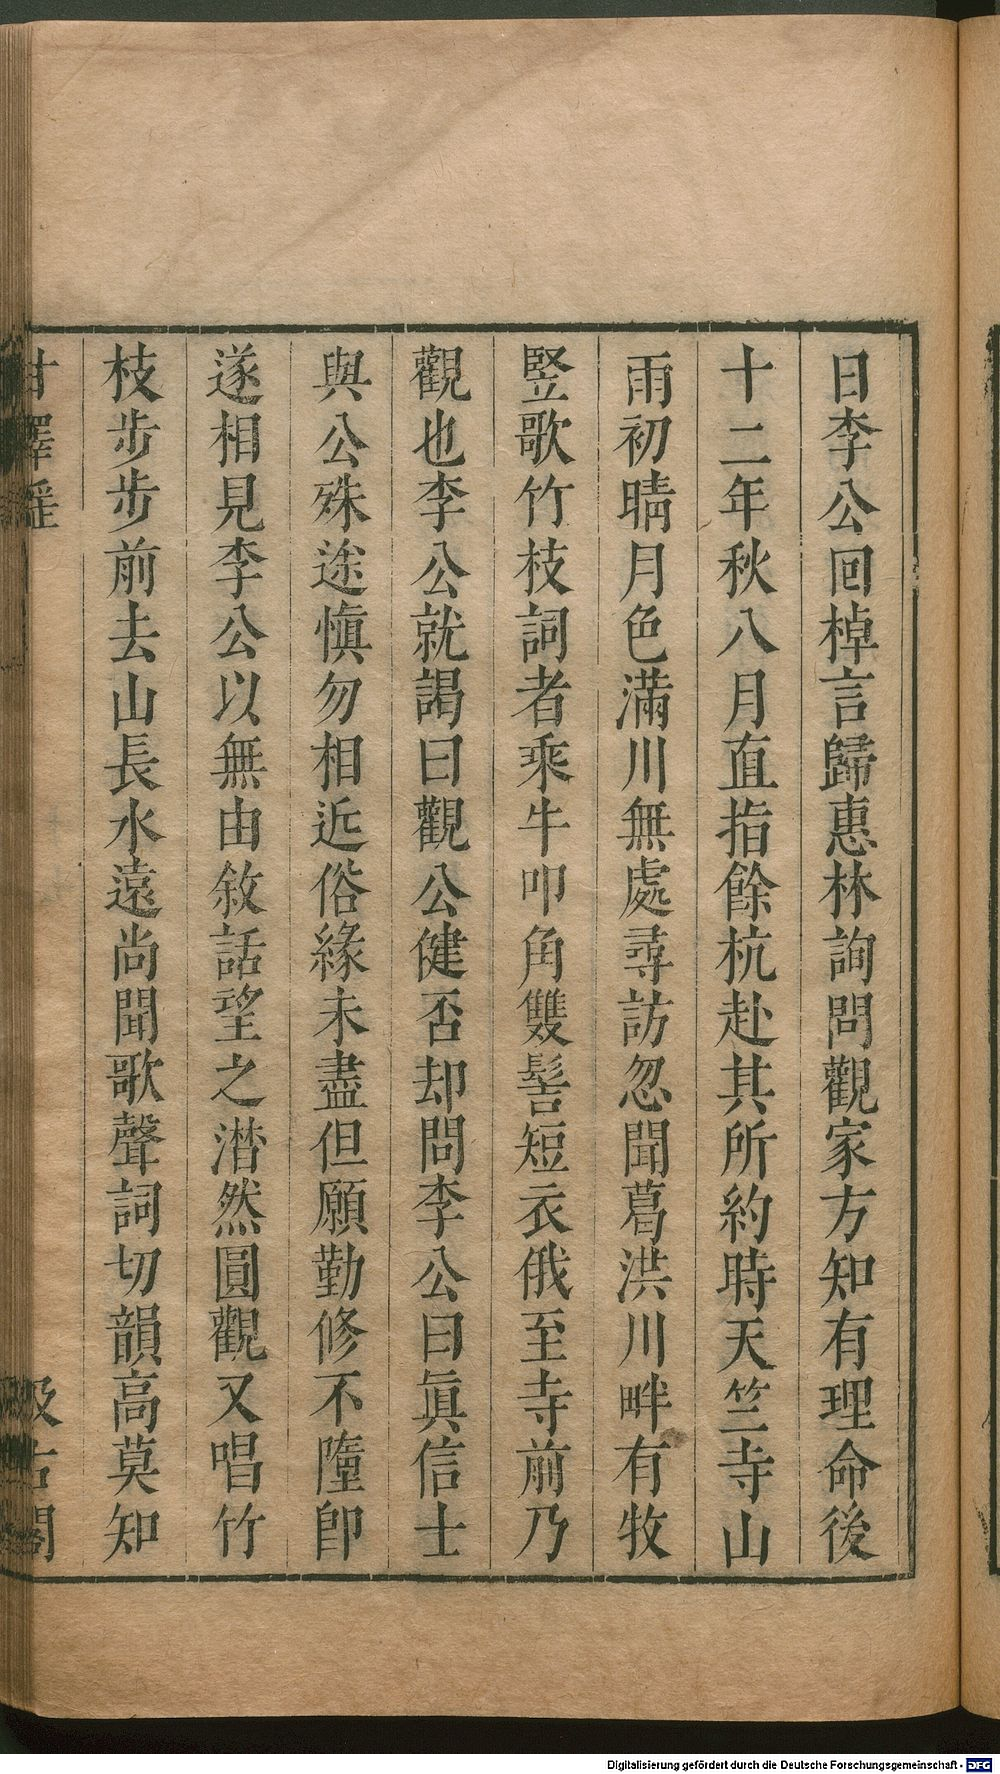 日李公回棹言歸惠林詢問觀家方知有理命後
十二年秋八月直指餘杭赴其所約時天竺寺山
雨初晴月色滿川無處尋訪忽聞葛洪川畔有牧
豎歌竹枝詞者乘牛叩角雙髻短衣俄至寺前乃
觀也李公就謁曰觀公健否却問李公曰眞信士
與公殊途愼勿相近俗緣未盡但願勤修不墮卽
遂相見李公以無由敘話望之潸然圓觀又唱竹
枝步步前去山長水遠尚聞歌聲詞切韻高莫知
甘澤謠
汲古閣
Digitalisierung gefördert durch die Deutsche Forschungsgemeinschaft - DFG